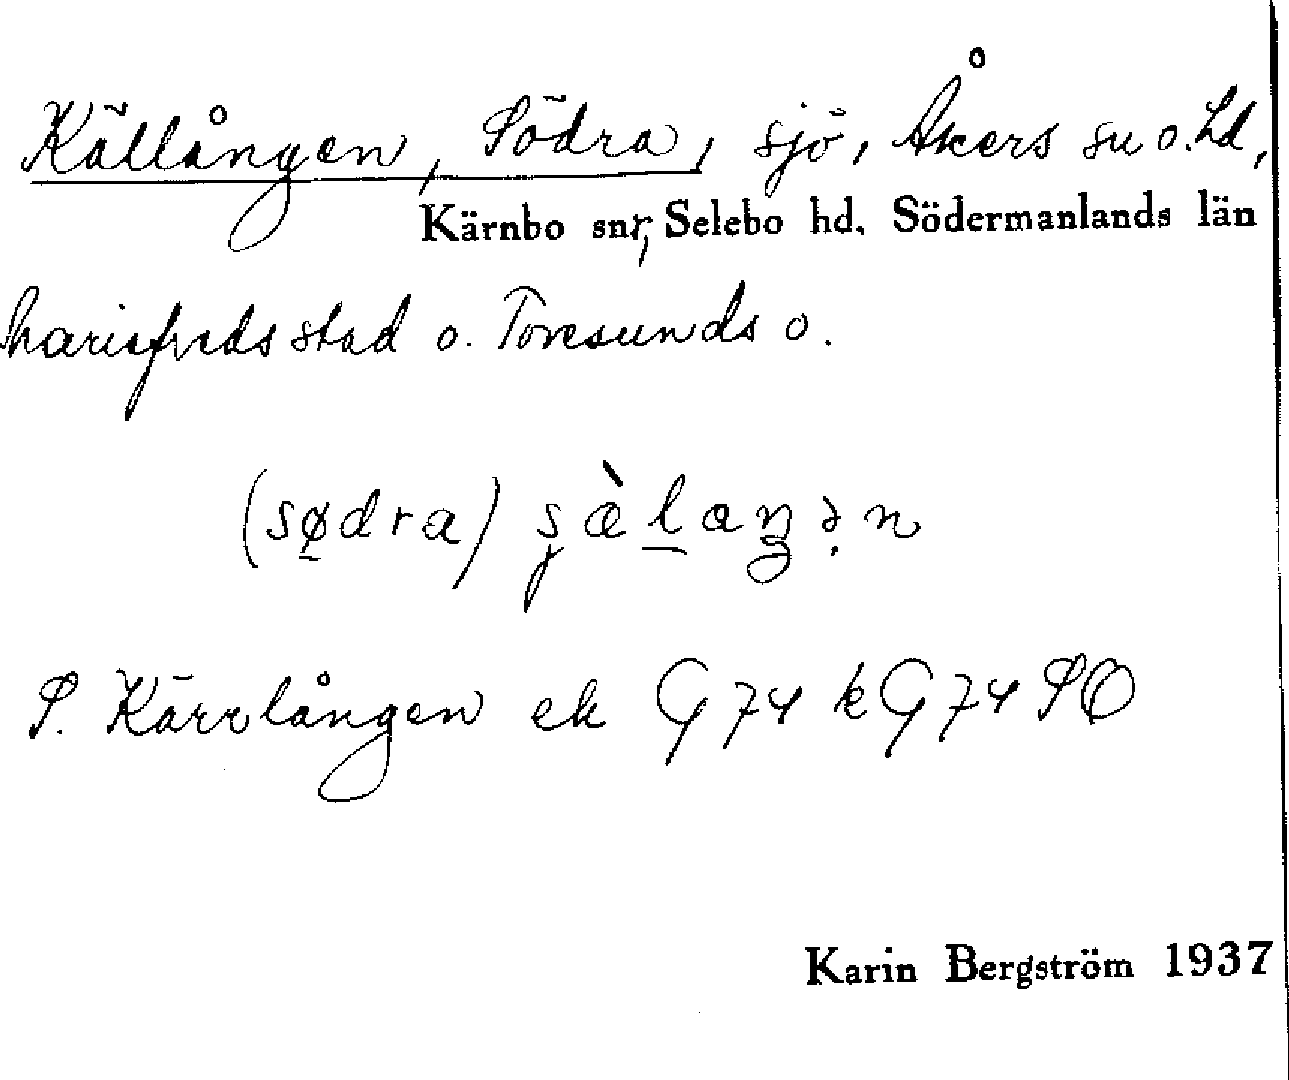 Källången, Södra, sjö, Åkers sn o. hd,
Kärnbo snr, Selebo hd. Södermanlands län
Mariefreds stad o. Toresunds o.
(södra)
S. Kärrlången ek G 74 k G 74 SO
Karin Bergström 1937